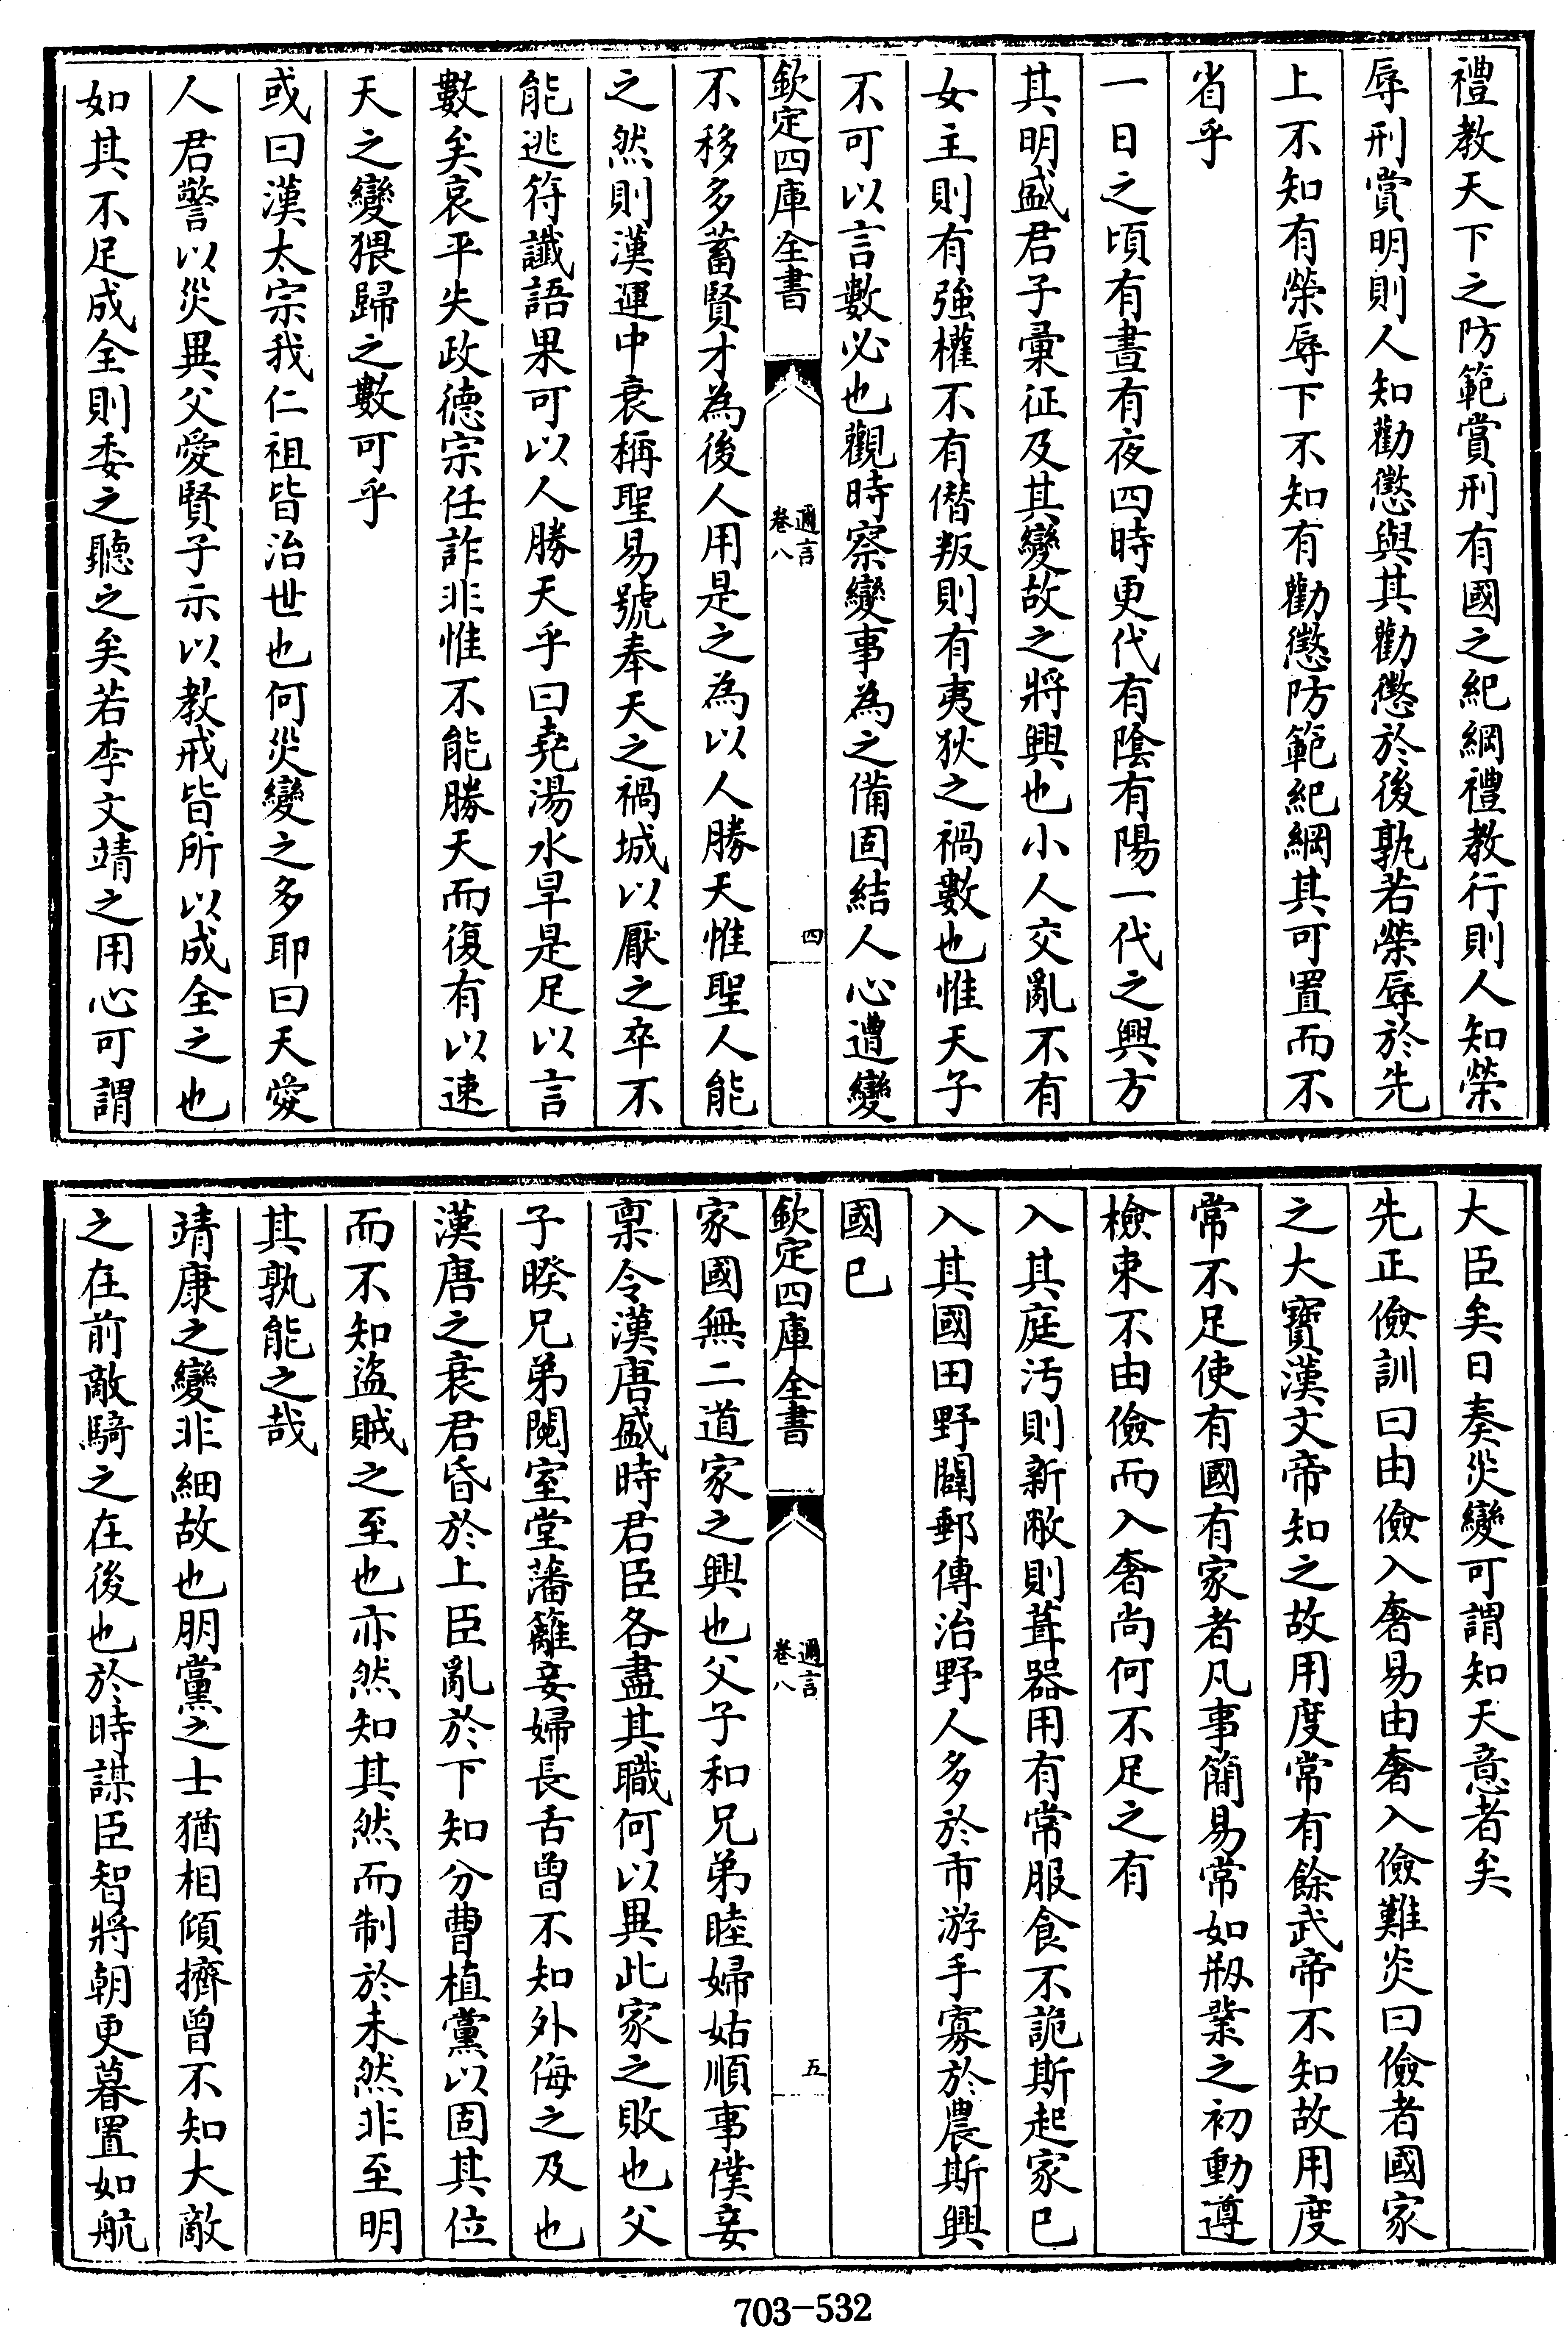 禮教天下之防範賞刑有國之紀綱禮教行則人知榮
辱刑賞明則人知勸懲與其勸懲於後孰若榮辱於先
上不知有榮辱下不知有勸懲防範紀綱其可置而不
省乎
一日之頃有晝有夜四時更代有陰有陽一代之興方
其明盛君子彙征及其變故之將興也小人交亂不有
女主則有強權不有僭叛則有夷狄之禍數也惟天子
不可以言數必也觀時察變事為之備固結人心遭變
欽定四庫全書
邇言
卷八
四
不移多蓄賢才為後人用是之為以人勝天惟聖人能
之然則漢運中衰稱聖易號奉天之禍城以厭之卒不
能逃符讖語果可以人勝天乎曰堯湯水旱是足以言
數矣哀平失政德宗任詐非惟不能勝天而復有以速
天之變猥歸之數可乎
或曰漢太宗我仁祖皆治世也何災變之多耶曰天愛
人君警以災異父愛賢子示以教戒皆所以成全之也
如其不足成全則委之聽之矣若李文靖之用心可謂
大臣矣日奏災變可謂知天意者矣
先正儉訓曰由儉入奢易由奢入儉難炎曰儉者國家
之大寶漢文帝知之故用度常有餘武帝不知故用度
常不足使有國有家者凡事簡易常如刱業之初動遵
檢束不由儉而入奢尚何不足之有
入其庭汚則新敝則葺器用有常服食不詭斯起家已
入其國田野闢郵傳治野人多於市游手寡於農斯興
國已
欽定四庫全書
邇言
卷八
五
家國無二道家之興也父子和兄弟睦婦姑順事僕妾
稟令漢唐盛時君臣各盡其職何以異此家之敗也父
子睽兄弟鬩室堂藩籬妾婦長舌曾不知外侮之及也
漢唐之衰君昏於上臣亂於下知分曹植黨以固其位
而不知盜賊之至也亦然知其然而制於未然非至明
其孰能之哉
靖康之變非細故也朋黨之士猶相傾擠曾不知大敵
之在前敵騎之在後也於時謀臣智將朝更暮置如航
703-532